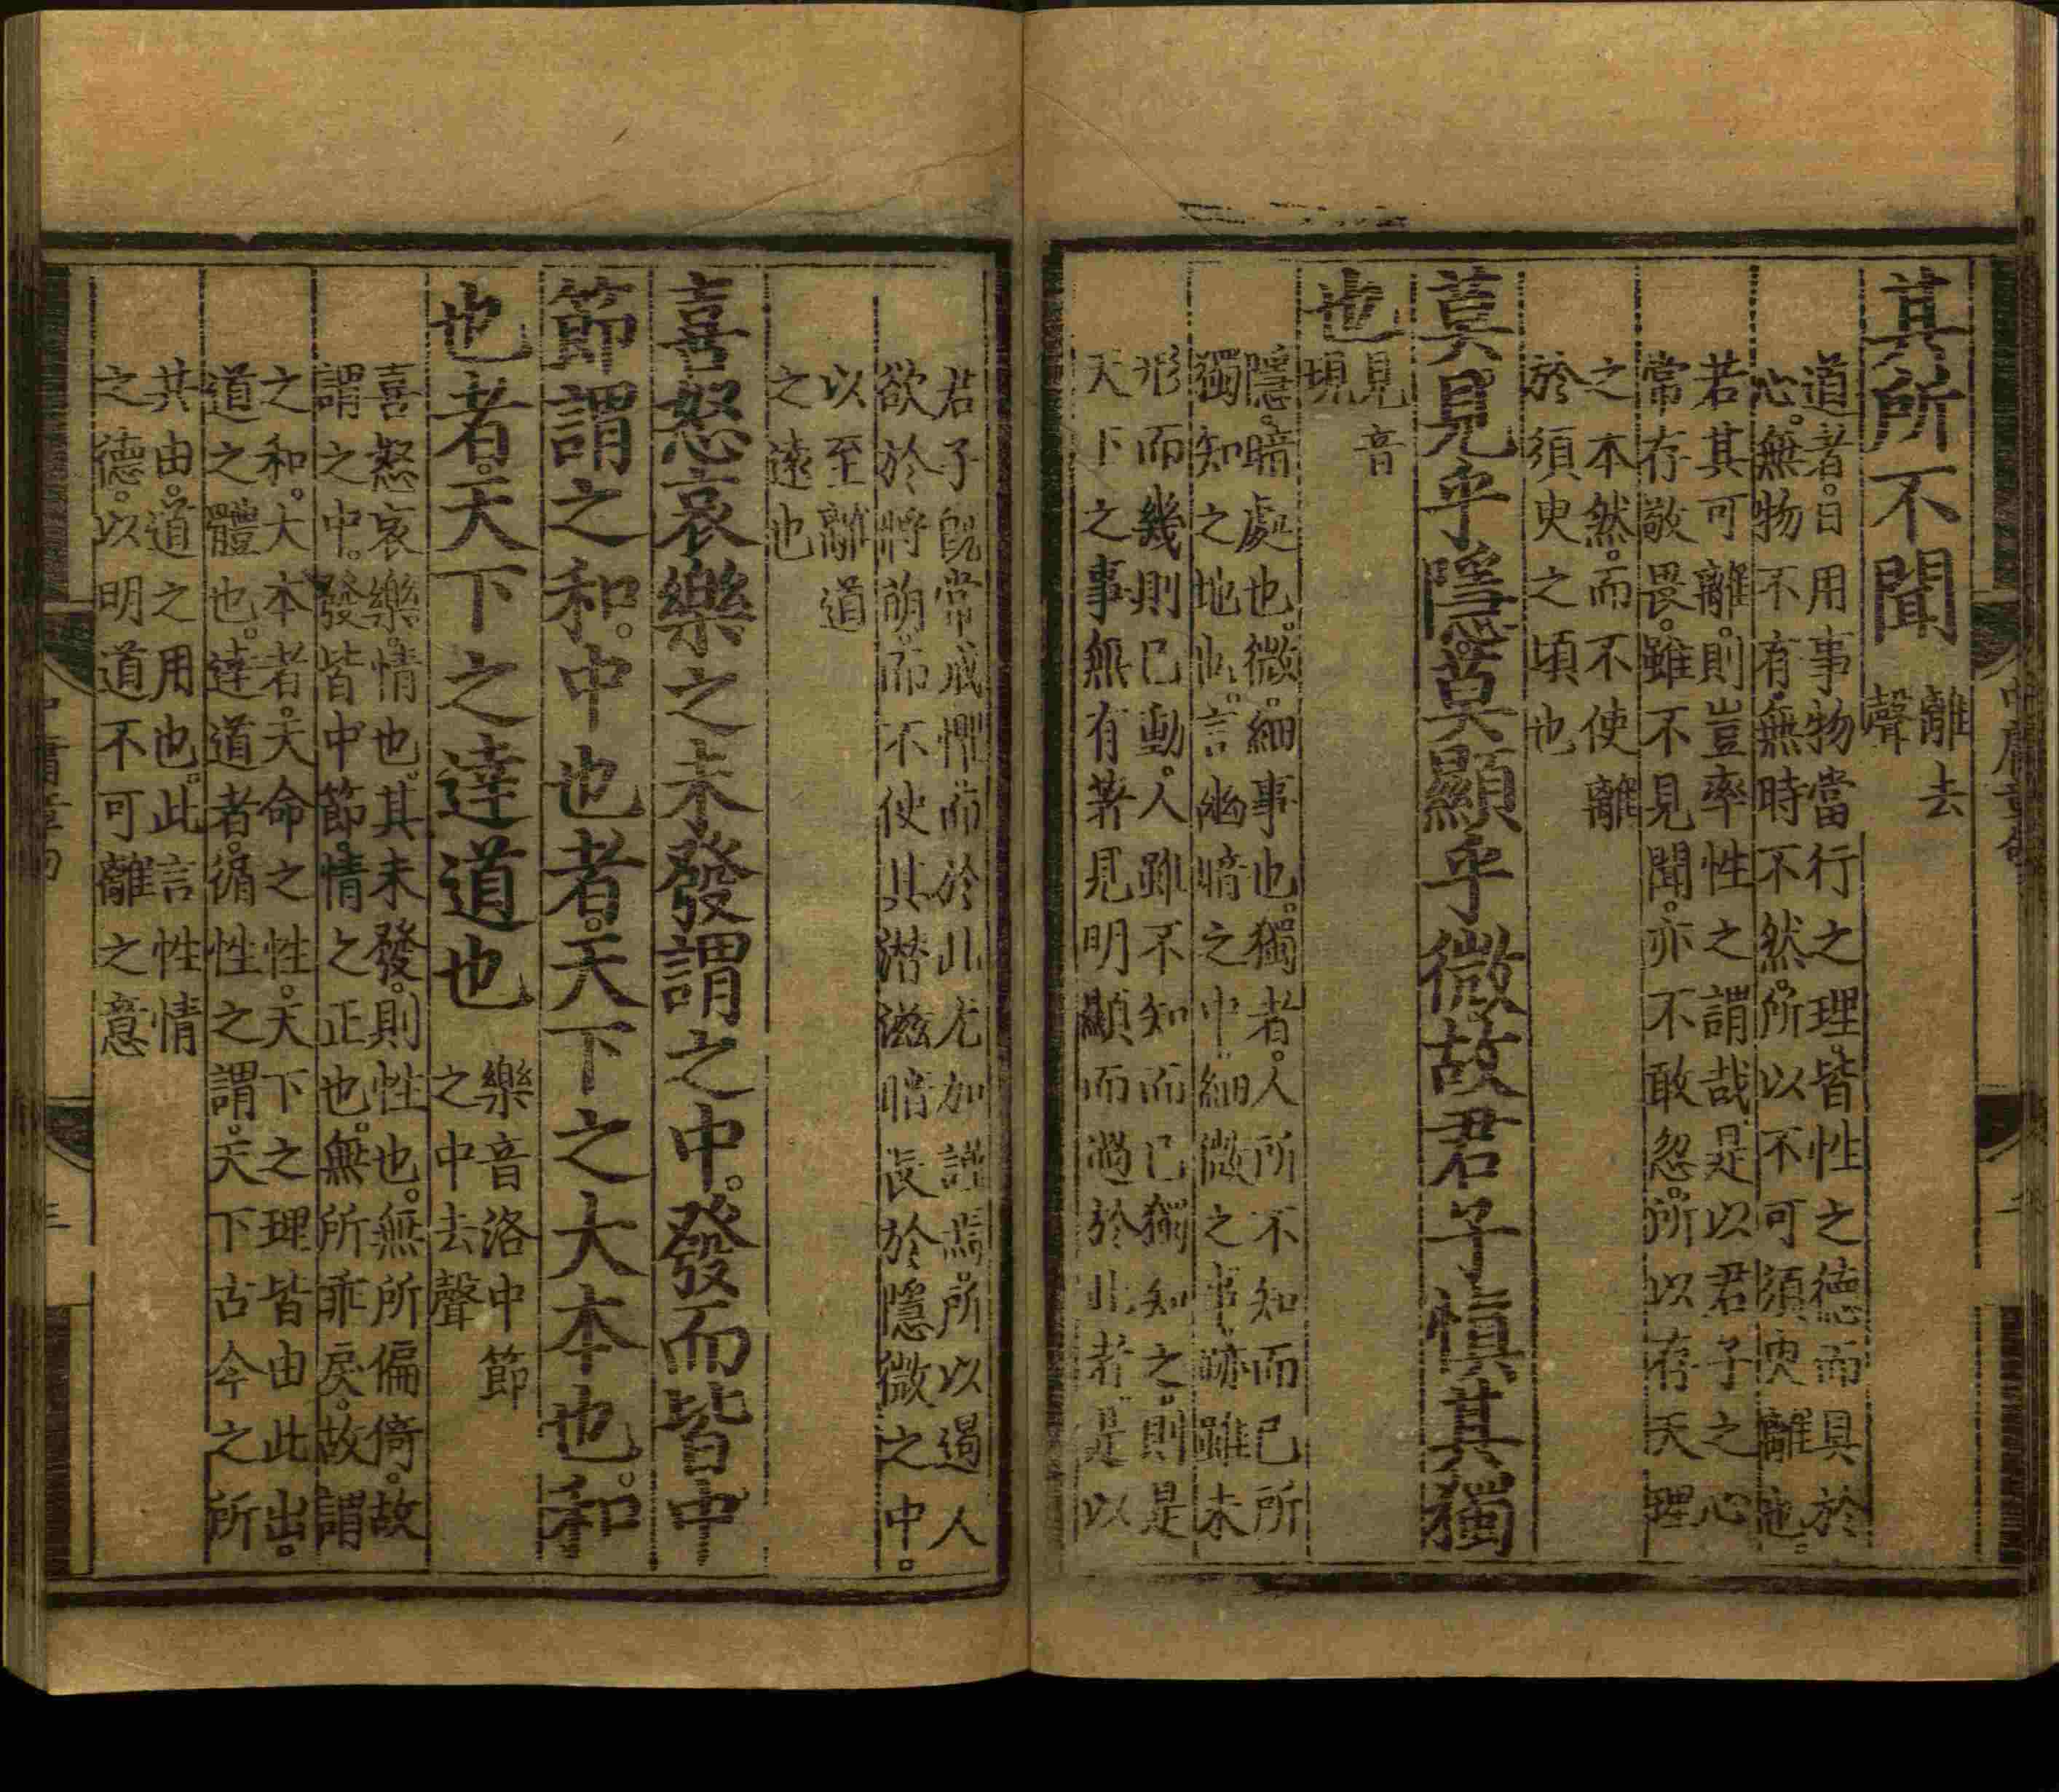 其所不聞 離去
聲
道者。日用事物當行之理。皆性之德而具於
心。無物不有。無時不然。所以不可須臾離也。
若其可離。則豈率性之謂哉。是以君子之心
常存敬畏。雖不見聞。亦不敢忽。所以存天理
之本然。而不使離
於須臾之頃也
莫見乎隱。莫顯乎微。故君子慎其獨
也 見音
現
隱。暗處也。微。細事也。獨者。人所不知而己所
獨知之地也。言幽暗之中。細微之事。跡雖未
形而幾則已動。人雖不知而己獨知之。則是
天下之事無有著見明顯而過於此者。是以
君子既常戒懼。而於此尤加謹焉。所以遏人
欲於將萌。而不使其潜滋暗長於隱微之中。
以至離道
之遠也
喜怒哀樂之未發謂之中。發而皆中
節謂之和。中也者。天下之大本也。和
也者。天下之達道也 樂音洛中節
之中去聲
喜怒哀樂。情也。其未發。則性也。無所偏倚。故
謂之中。發皆中節。情之正也。無所乖戾。故謂
之和。大本者。天命之性。天下之理皆由此出。
道之體也。達道者。循性之謂。天下古今之所
共由。道之用也。此言性情
之德。以明道不可離之意